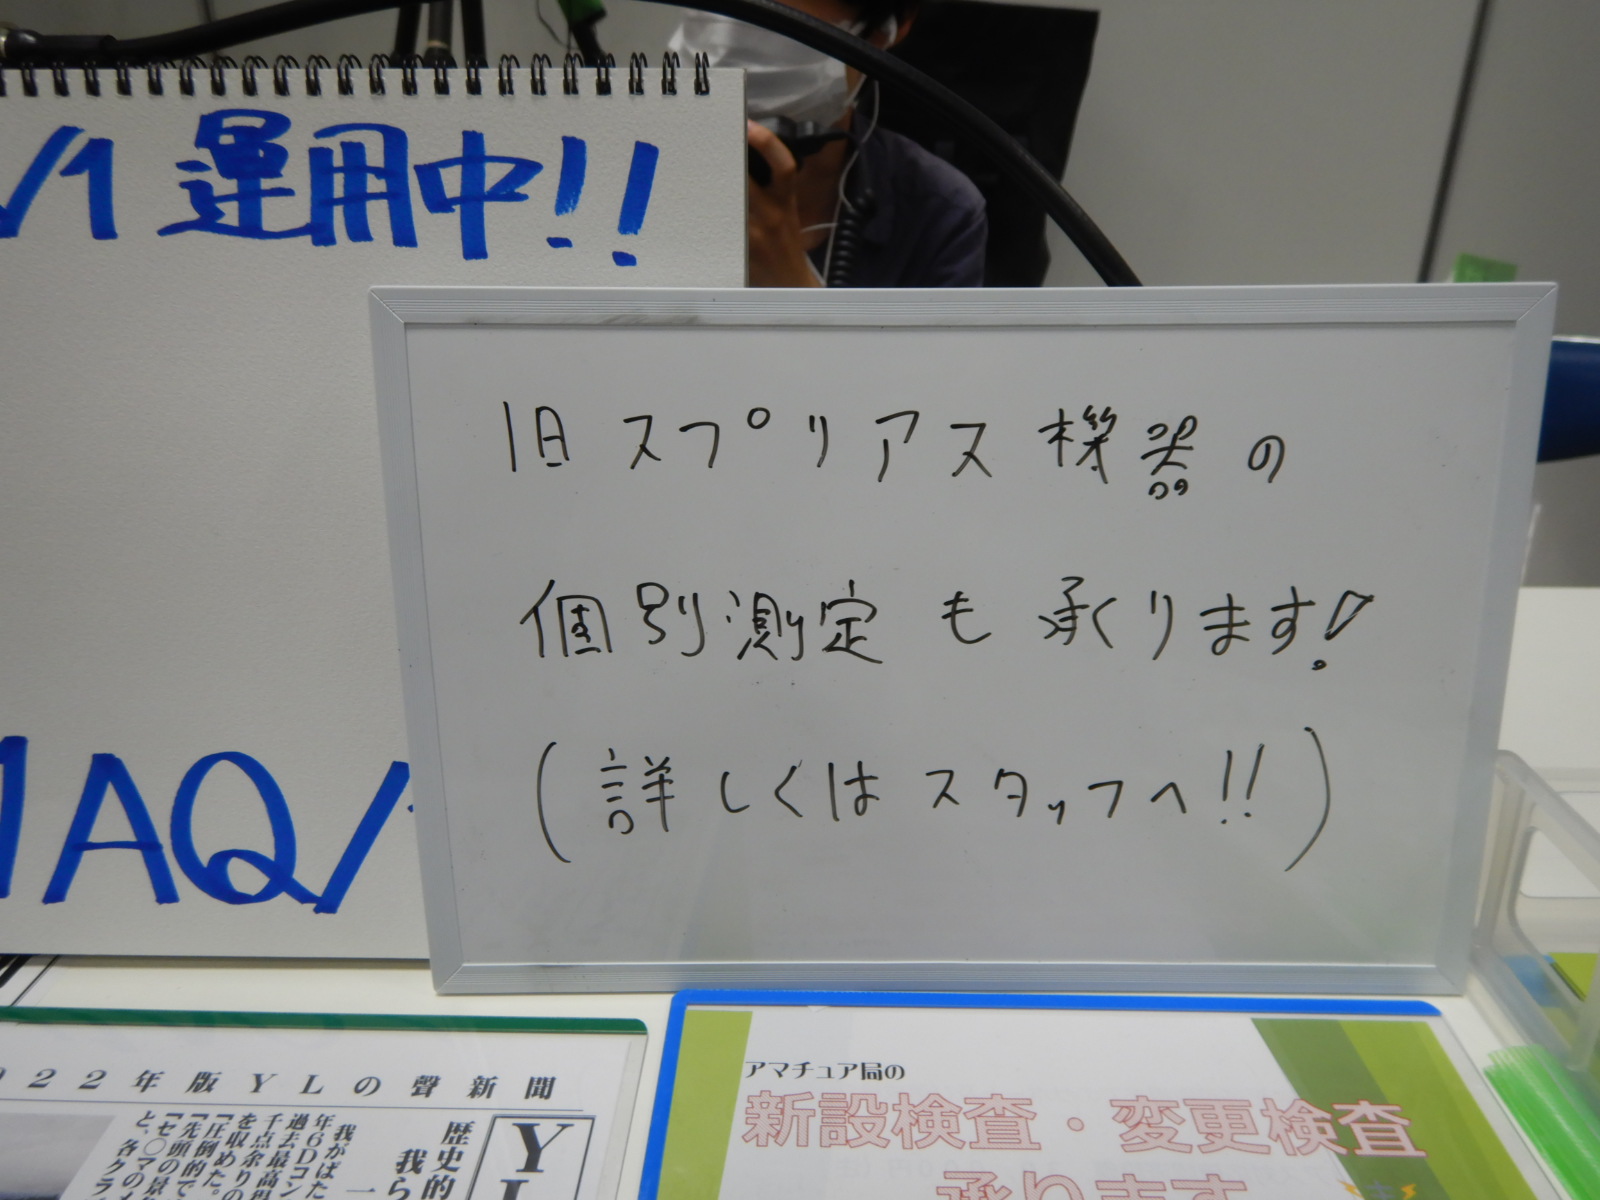 /1 運用中!!
1AQ/
旧スプリアス機器の
個別測定も承ります!
(詳しくはスタッフへ!!)
022年版YLの聲新聞
YL
歴史的
我ら
一
我がばた
年6Dコン
過去最高得
千点余りの
を収めた。
「圧倒的で
「先頭の景
「セ〇マの
と、各クラ
アマチュア局の
新設検査・変更検査
承ります